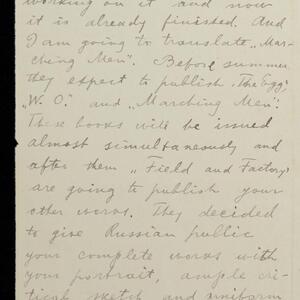 working on it and now
it is already finished. And
I am going to translate „Mar-
ching Men". Before summer
they expect to publish „The Egg",
„W. O." and „Marching Men".
These books will be issued
almost simultaneously and
after them „Field and Factory"
are going to publish your
other works. They decided
to give Russian public
your complete works with
your portrait, ample cri-
tical sketch and uniform